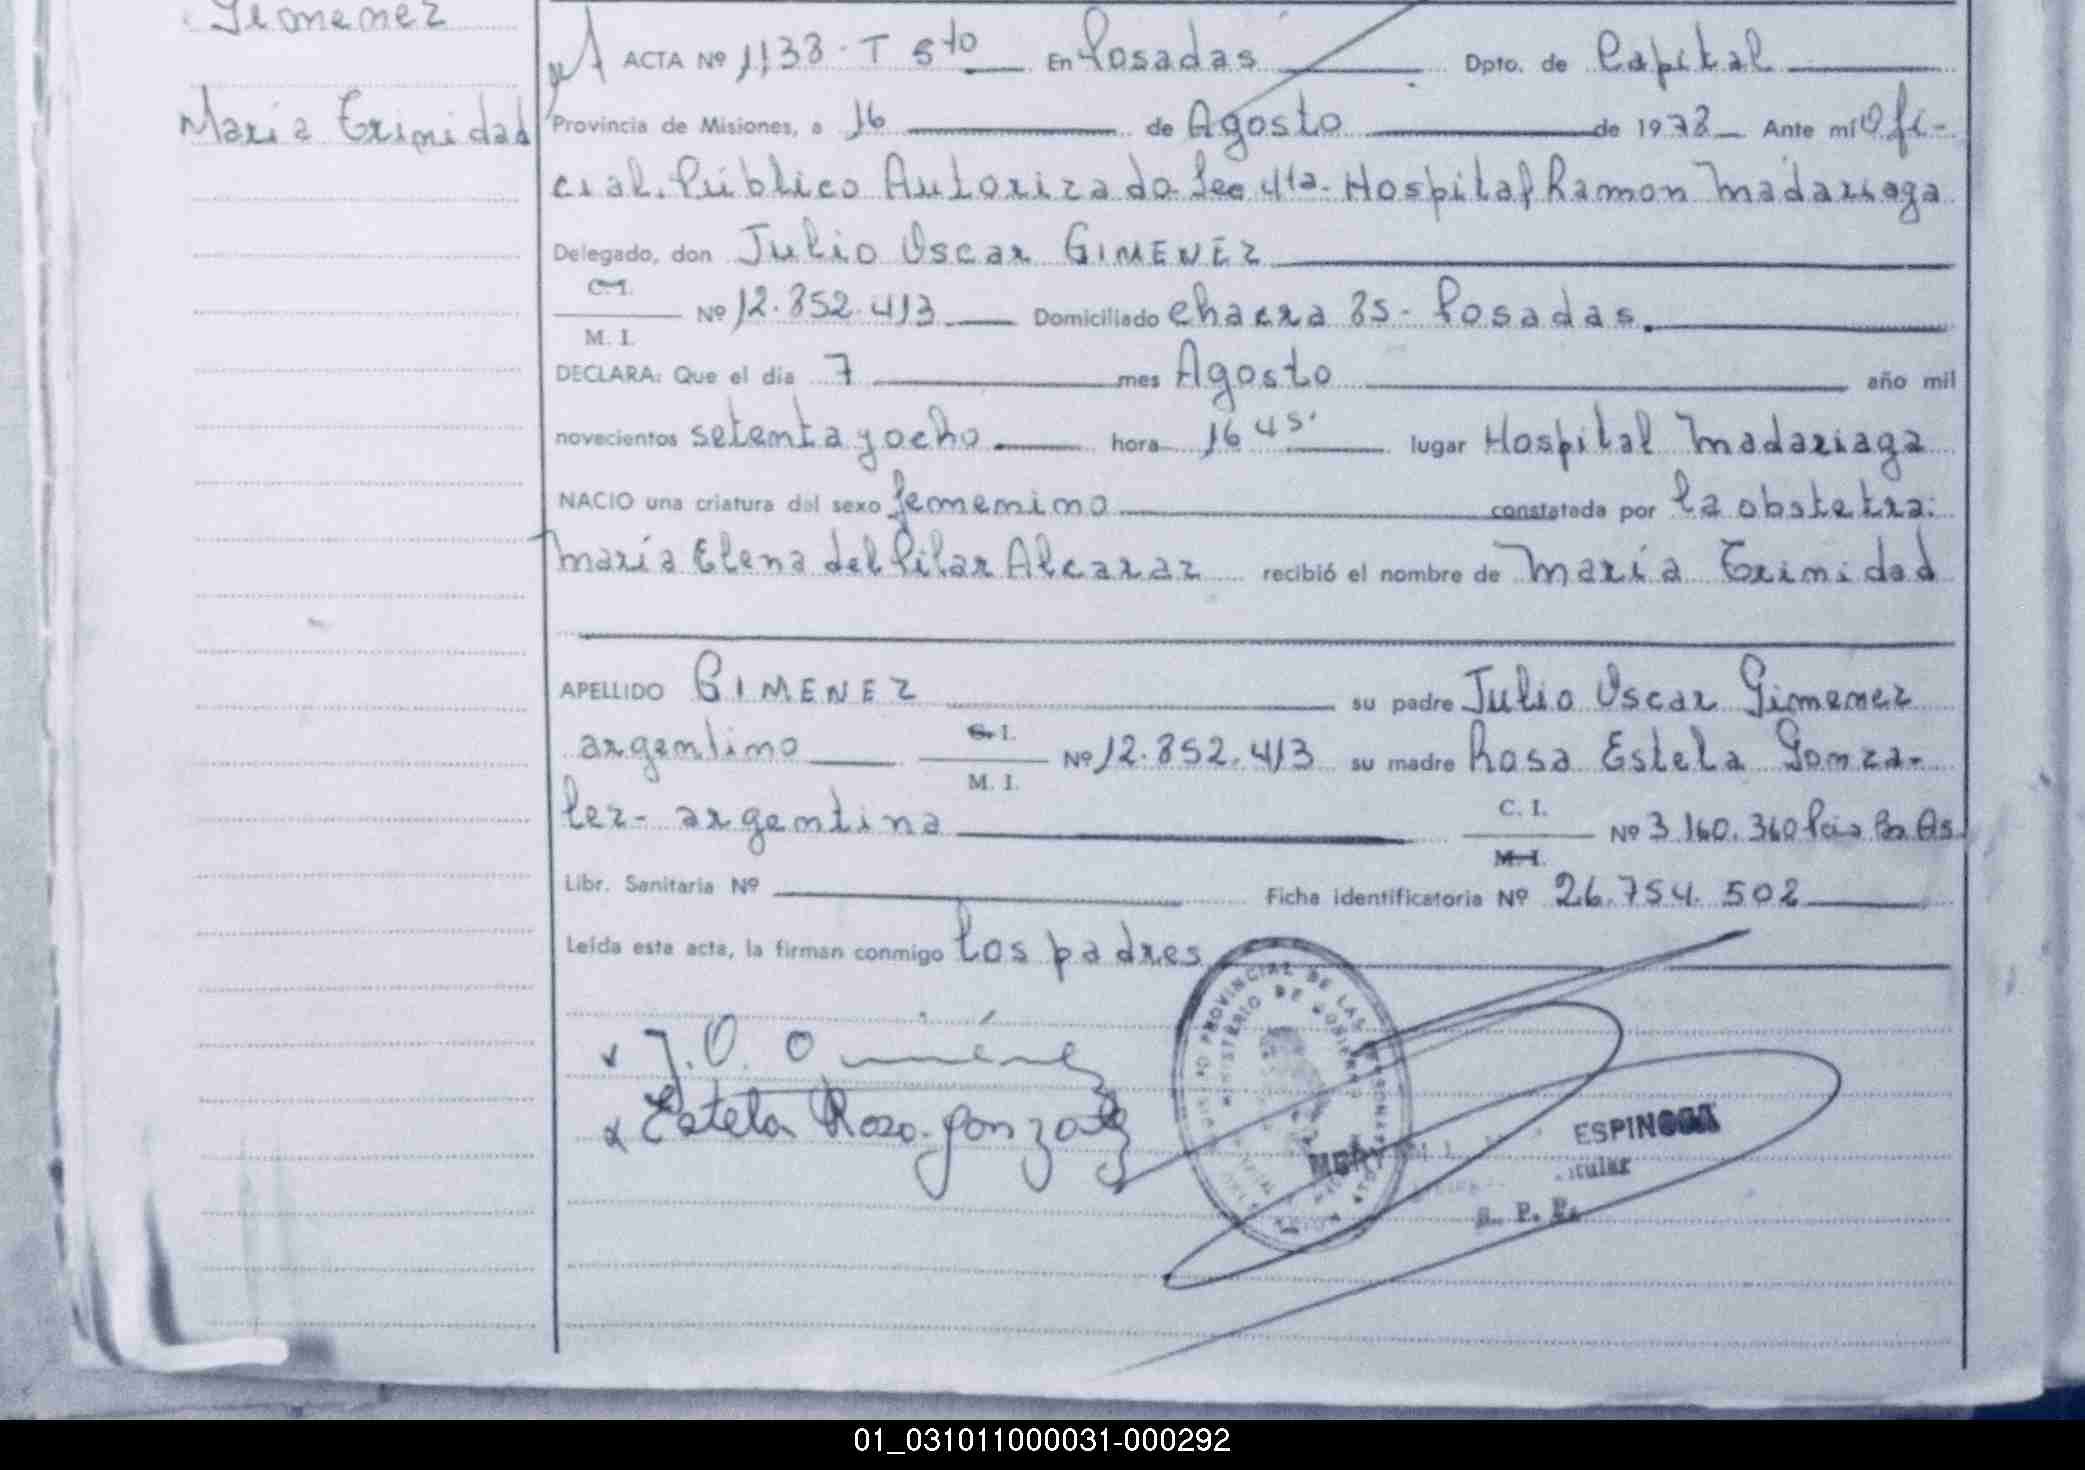 Gimenez
ACTA Nº 1138 - T 5to En Posadas Dpto. de Capital
Maria Trinidad
Provincia de Misiones, a 16 de Agosto de 1978 Ante mí Ofi-
cial. Público Autorizado Sec 4ta - Hospital Ramon Madariaga
Delegado, don Julio Oscar GIMENEZ
C. I.
M. I.
Nº 12.852.413 Domiciliado Chacra 85 - Posadas.
DECLARA: Que el día 7 mes Agosto año mil
novecientos setenta y ocho hora 16 45. lugar Hospital Madariaga
NACIO una criatura del sexo femenino constatada por la obstetra:
Maria Elena del Pilar Alcaraz recibió el nombre de Maria Trinidad
APELLIDO GIMENEZ su padre Julio Oscar Gimenez
argentino C. I. M. I. Nº 12.852.413 su madre Rosa Estela Gonza-
lez - argentina C. I. M. I. Nº 3.160.360 Pcia Bs As.
Libr. Sanitaria Nº Ficha identificatoria Nº 26.754.502
Leída esta acta, la firman conmigo los padres
J. O. Gimenez
Estela Rosa Gonzalez
PROVINCIAL DE LAS PERSONAS
MINISTERIO DE GOBIERNO
MERY ESPINOSA
R. P. P.
01_031011000031-000292